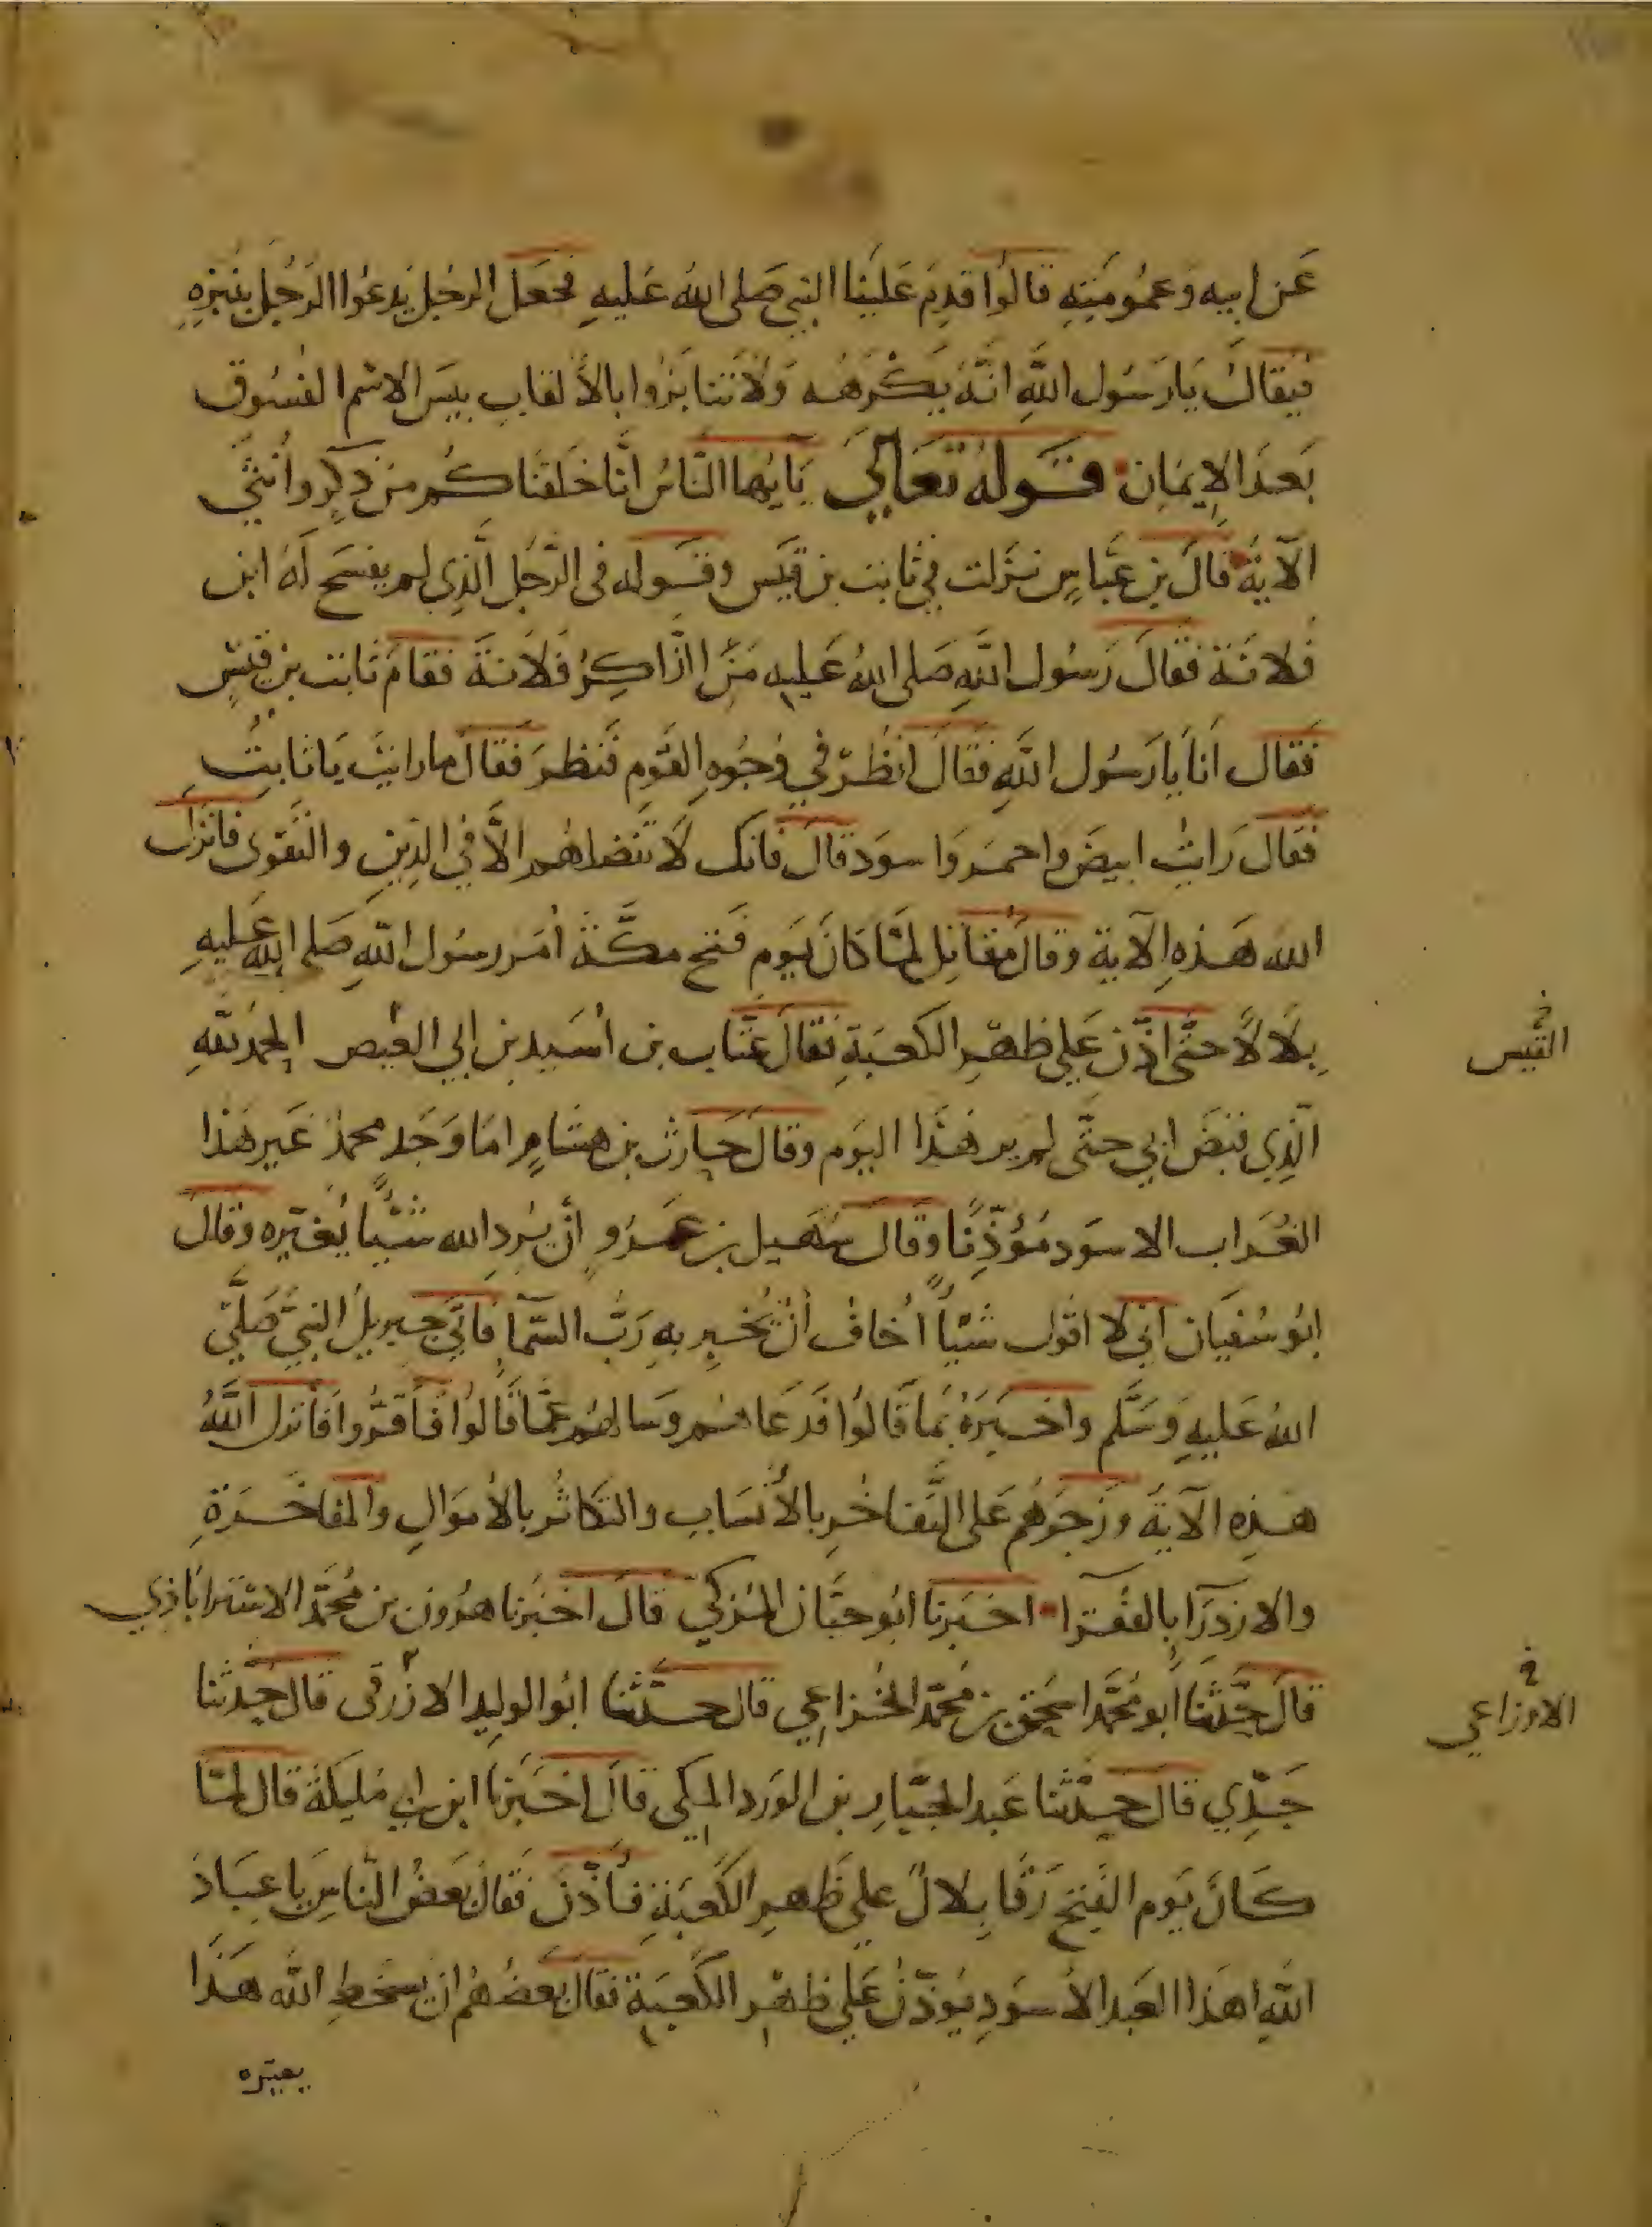 عَن ابيه وَعمُومَتِهِ قالوا قدِمَ عَلَينا النبي صَلى اللهُ عَليهِ فجعَل الرجُل يَدعُوا الرَجُل بنَبزِهِ
فيُقالُ يَا رَسُول اللهِ انَّهُ يَكْرَهُه وَلا تنابَزُوا بالأَلقاب بيسَ الاسْم الفسُوق
بَعدَ الإيمَان قَولهُ تعَالَى يَآيُها النَّاسُ انَّا خَلَقنَاكُم من ذكرٍ وأُنثَى
الآيةُ قالَ بن عبَّاسٍ نزَلت في ثابت بن قيَس وقَوله في الرَّجُل الَّذِي لم يفسَح لَهُ ابن
فُلانَة فقالَ رَسُول اللهِ صَلى اللهُ عَليهِ مَنِ الذَّاكِرُ فُلانة فقامَ ثابت بن قيسٍ
فَقال اَنا يا رَسُول اللهِ فقَالَ انظُرْ في وُجُوهِ القَومِ فَنظرَ فقالَ ما رايتَ يَا ثابتُ
فقَالَ رَايتُ ابيضَ واحمَر وَاسوَد قالَ فانك لَا تَفضلهُم الَّا في الدِينِ والتَّقوى فانزَل
الله هَذهِ الآية وقالَ مُقاتِل لمَّا كانَ يَوم فَتح مكَّة أمَر رسُول اللهِ صَلى الله عَليهِ
بِلَالاً حتَّى اذّن عَلي ظهرِ الكعبَةِ فقالَ عتَّاب بن أسَيد بن ابي العِيص الحمدُ للهِ
الَّذِي قبَضَ ابي حتَّى لم يرَ هَذَا اليَوم وقالَ حَارث بن هشامٍ امَا وَجَد محمدٌ غَير هَذا
الغُرَاب الاسوَد مُؤَذِّنًا وقَالَ سُهَيل بن عَمرٍو أنْ يُرِد الله شَيئًا يُغيّره وقالَ
ابُو سُفيَان اني لا اقول شَيئاً أخافُ أنْ يُخبِر بِهِ رَبُّ السَّمآ فاتي جبريلُ النبيَّ صَلَّى
اللهُ عَليهِ وَسَلَّم واخبَرَهُ بمَا قَالوُا فَدعَاهُم وسَالهُم عمَّا قالُوا فأَقرُّوا فانزل اللهُ
هذِه الآيةَ وَزجَرهُم عَلى التَّفاخُرِ بالأنسَاب والتكاثُر بالأموَالِ والمفاخَرَةِ
والازدرَآ بِالفُقَرآ اخبَرنا ابُو حَسَّان المُزكي قالَ اخبَرنا هرُون بن مُحمَّد الاستراباذِي
قالَ حَدَّثَنا أبو مُحَمَّد اسحَق بن مُحمَّد الخُزاعي قال حَدَّثنا ابُو الوليدِ الازْرَقي قالَ حَدثنا
جَدِّي قالَ حَدَّثنا عَبد الجبَّارِ بن الوَرد المكي قالَ اخبَرنا ابن ابي مُليكَة قالَ لمَّا
كَانَ يَوم الفَتح رَقَا بِلالٌ عَلي ظَهرِ الكَعبَةِ فأذَّنَ فقالَ بَعضُ النَّاسِ يَا عِبَادَ
اللهِ اهَذا العَبد الأسوَدِ يُؤذّنُ عَلي ظَهرِ الكَعبَةِ فقالَ بَعضُهُم ان يسخطِ الله هَذَا
يغيّره
القَيس
الاوزاعي